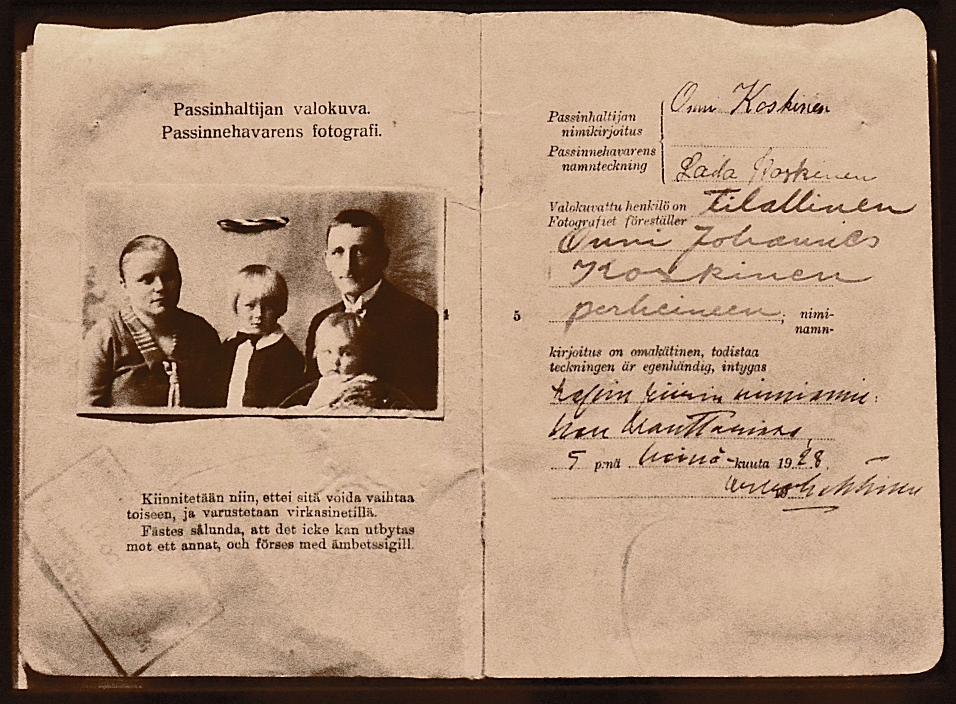 Passinhaltijan valokuva.
Passinnehavarens fotografi.
Kiinnitetään niin, ettei sitä voida vaihtaa
toiseen, ja varustetaan virkasinetillä.
Fästes sålunda, att det icke kan utbytas
mot ett annat, och förses med ämbetssigill.
Passinhaltijan
nimikirjoitus
Onni Koskinen
Passinnehavarens
namnteckning
Koskinen
Valokuvattu henkilö on Tilallinen
Fotografiet föreställer
Onni Johannes
Koskinen
5 perheineen, nimi-
namn-
kirjoitus on omakätinen, todistaa
teckningen är egenhändig, intygas
piirin nimismie-
5 p:nä heinä-kuuta 1928.